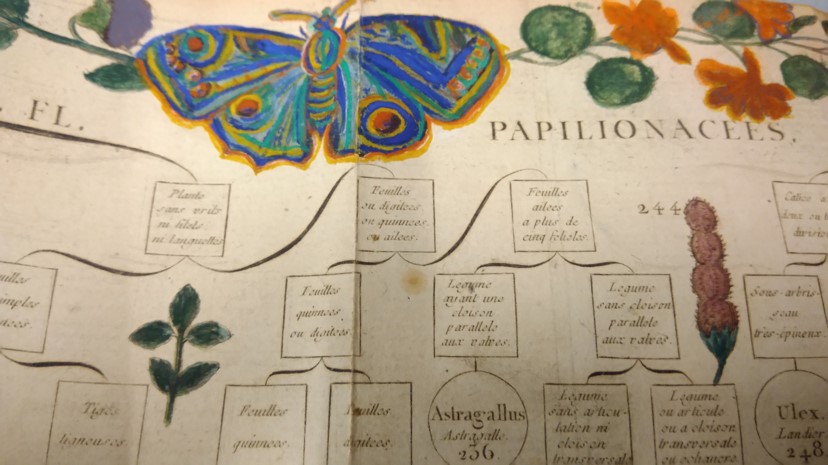 FL.
PAPILIONACÉES.
Plante
sans vrils
ni filets.
ne Languettes
Feuilles
ou digitees.
ou quinnees.
ou ailees.
Feuilles
ailees
a plus de
cinq folioles.
244
Calice
Feuilles
quinnees
ou digitees.
Legume
ayant une
cloison
parallele
aux valves.
Legume
sans cloison
parallele
aux valves.
Sous-arbris-
seau
tres-épineux.
Tiges
ligneuses.
Feuilles
quinnees.
Feuilles
digitees.
Astragallus
Astragalle.
236.
Legume
sans articu-
lation ni
cloison
transversale
Legume
ou articulé
ou a cloison
transversale
ou echancre.
Ulex.
Landier
248